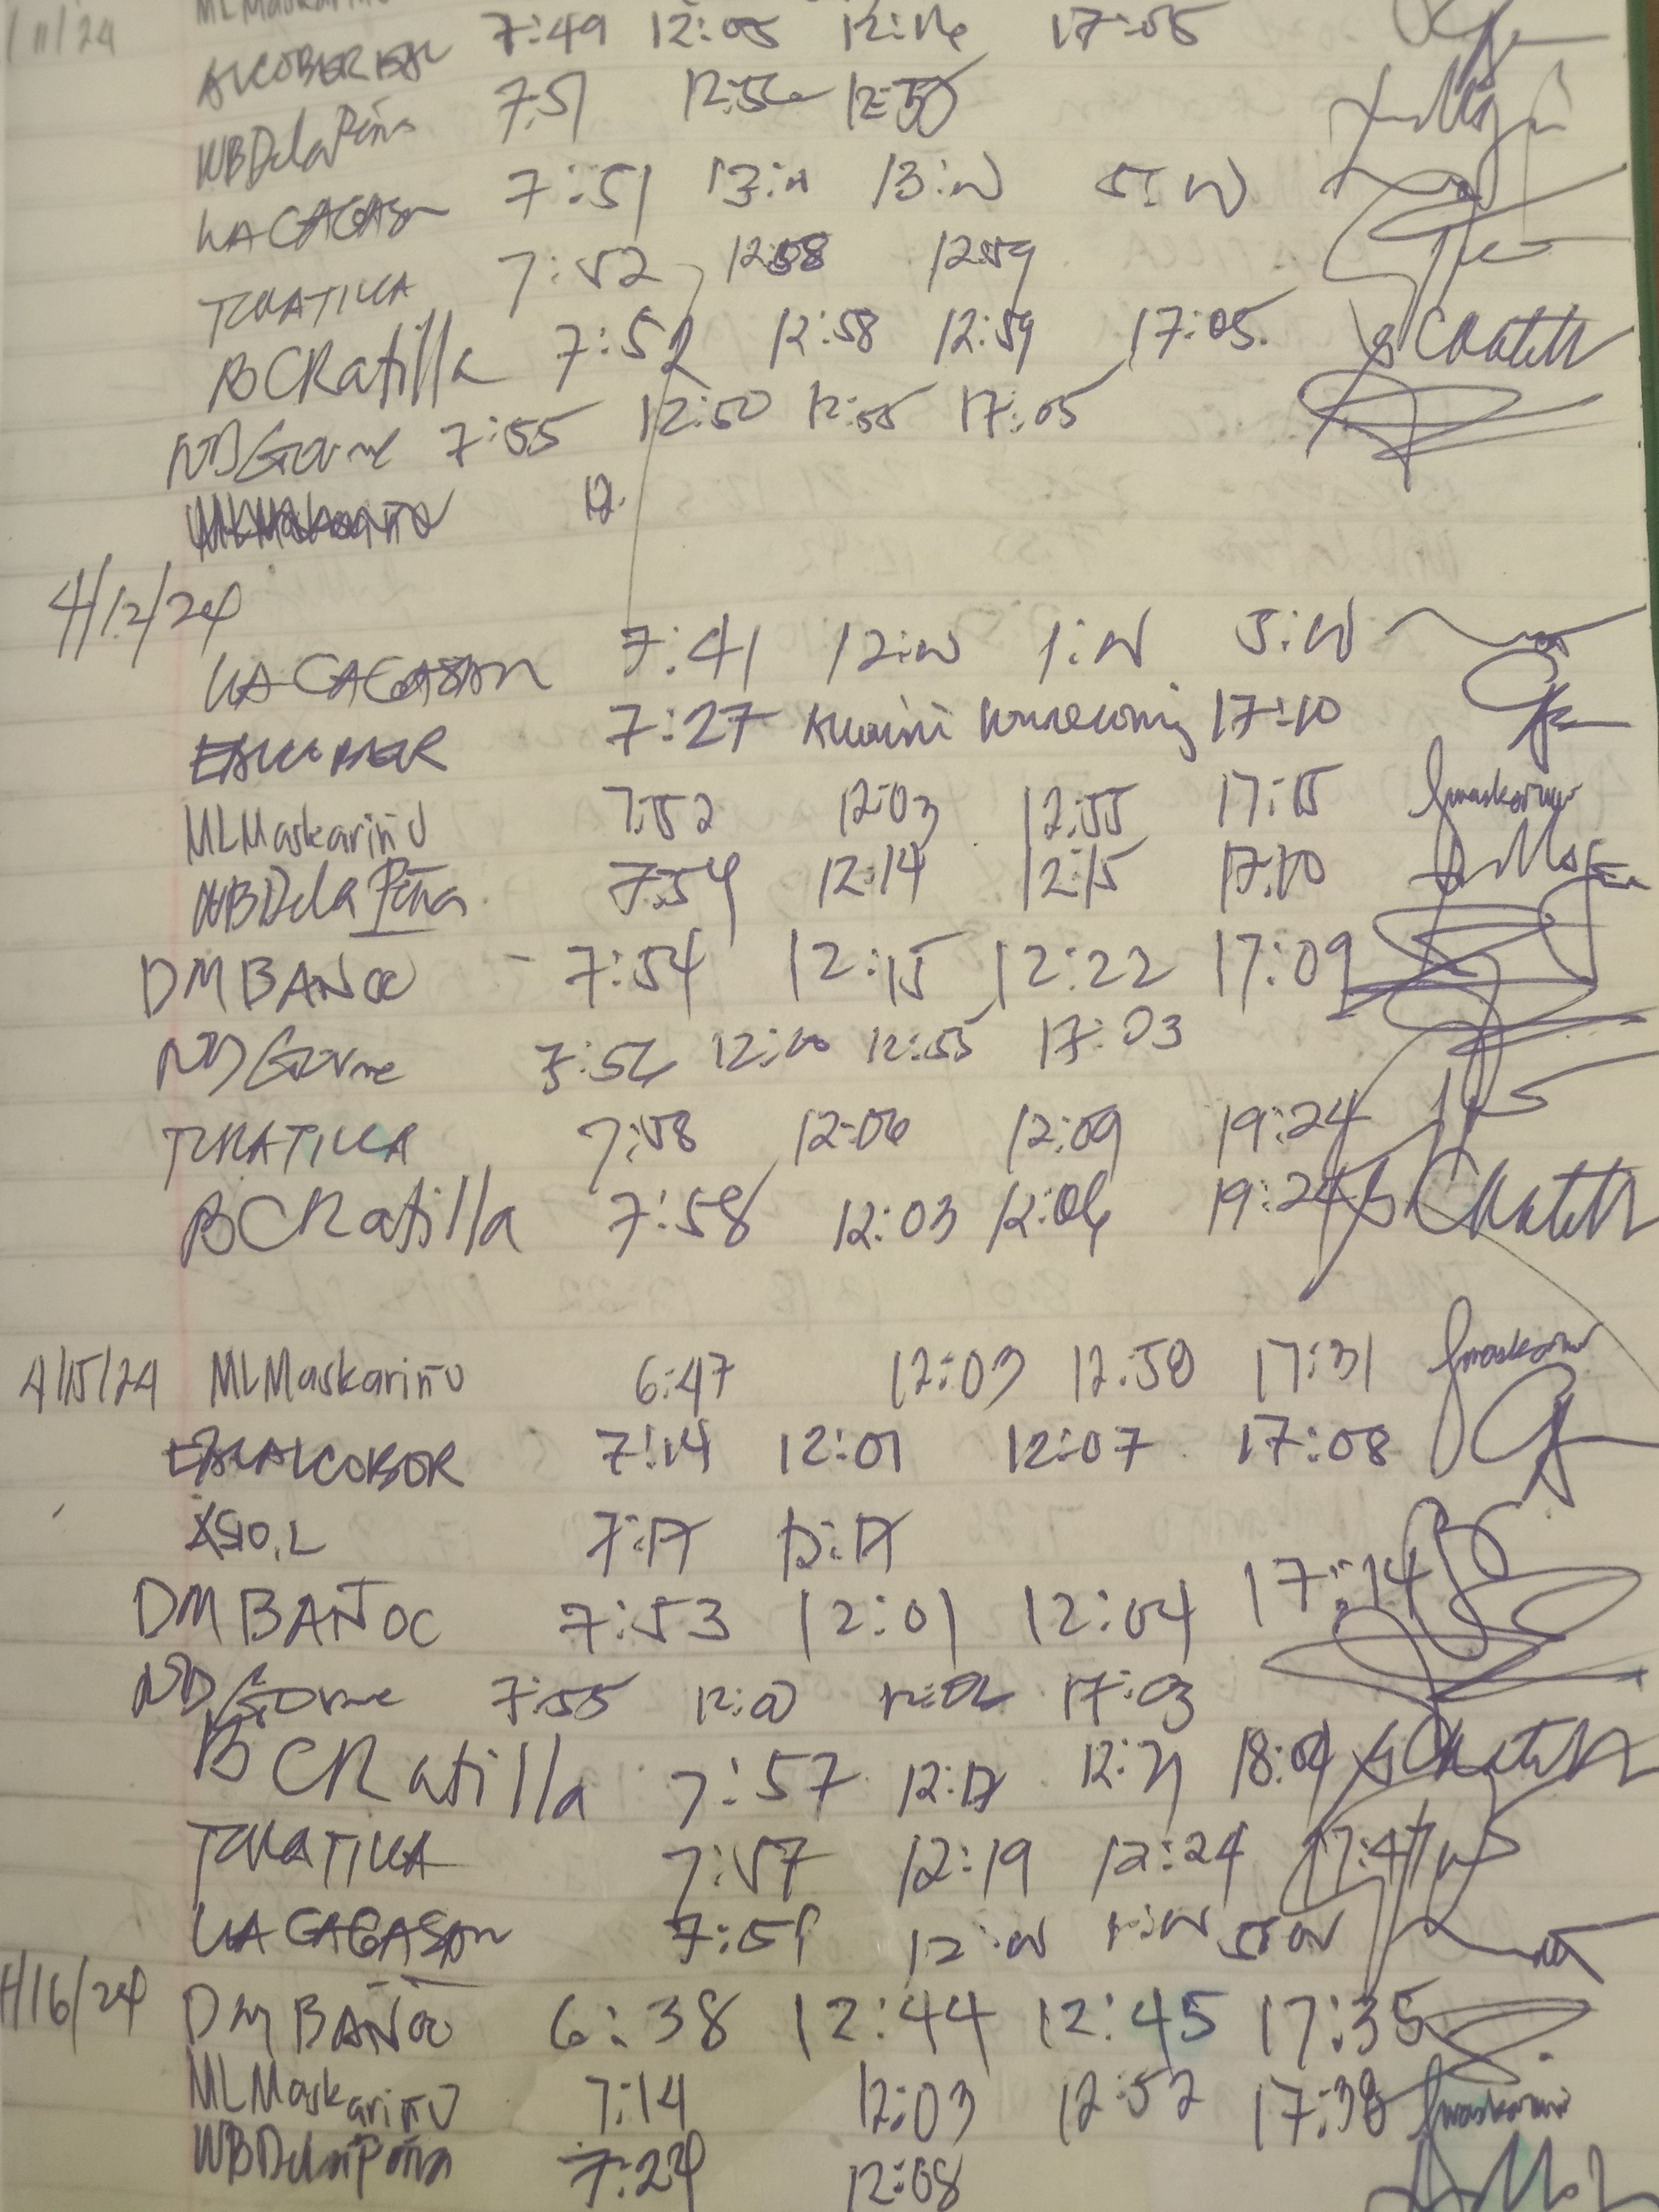 /11/24 MLMaskariño
7:49 12:05 12:16 17:05
WBDelaPeña 7:51 12:56 12:50
7:51 13:w 13:w 5:w
TCRATILLA 7:52 12:58 12:59
BCRatilla 7:52 12:58 12:59 17:05
NDGorme 7:55 12:50 12:55 17:05
MLMaskariño 12
4/12/24
LACAGASAN 7:41 12:w 1:w 5:w
7:27 17:10
MLMaskariño 7:52 12:03 12:55 17:15
WBDela Peña 7:54 12:14 12:15 17:10
DMBAÑOC - 7:54 12:15 12:22 17:09
NDGorme 7:56 12:00 12:55 17:03
TCRATILLA 7:58 12:06 12:09 19:24
BCRatilla 7:58 12:03 12:06 19:24 BCRatilla
4/15/24 MLMaskariño 6:47 12:03 12:50 17:31
EALCOBER 7:14 12:01 12:07 17:08
7:17 12:17
DMBAÑOC 7:53 12:01 12:04 17:14
NDGorme 7:55 12:00 12:02 17:03
BCRatilla 7:57 12:17 12:21 18:04
TCRATILLA 7:57 12:19 12:24 17:47
LACAGASAN 7:59 12:w 1:w 5:w
4/16/24 DMBAÑOC 6:38 12:44 12:45 17:35
MLMaskariño 7:14 12:03 12:52 17:38
WBDelaPeña 7:24 12:08